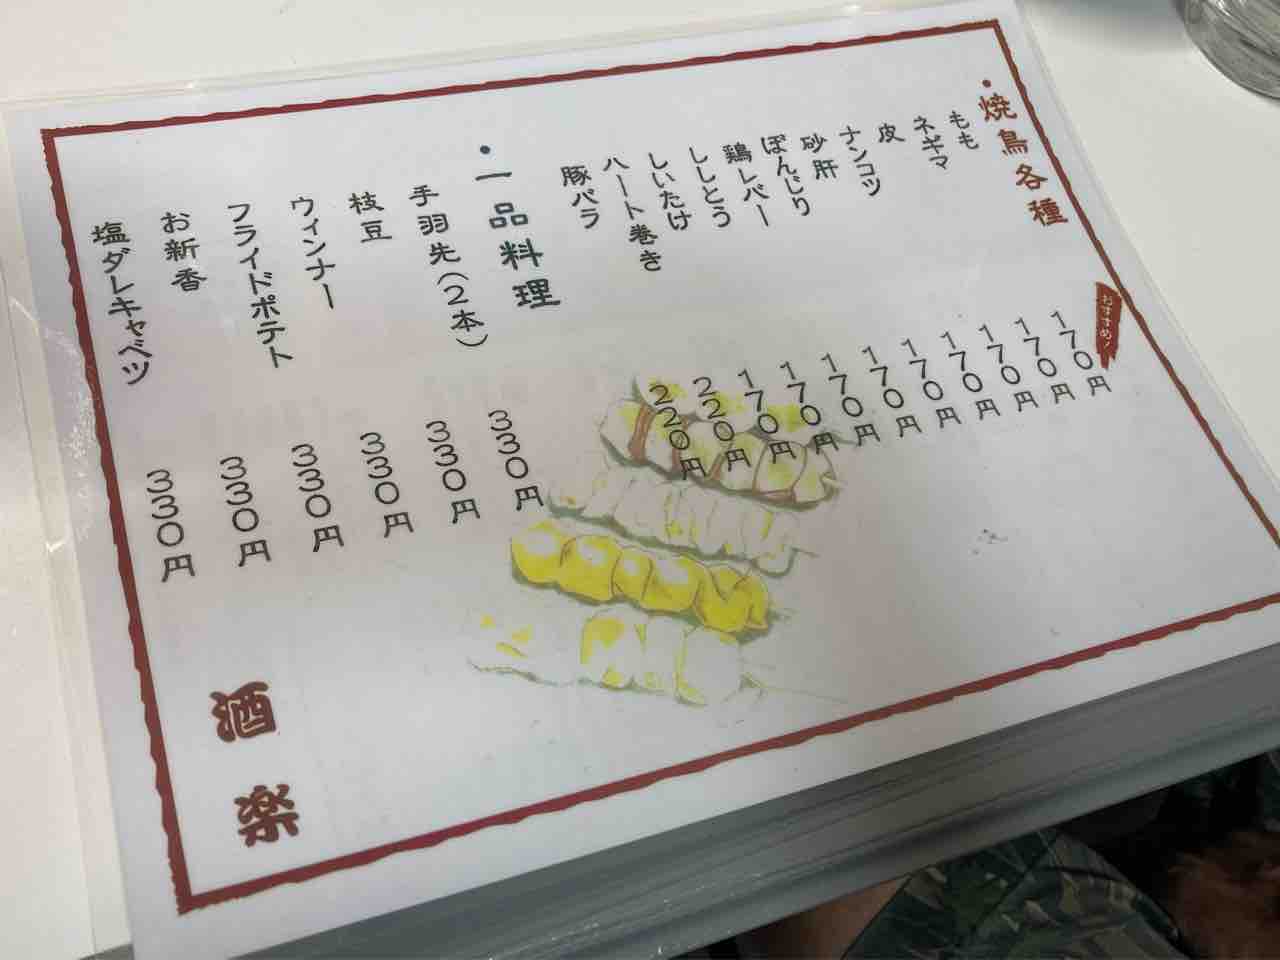 ・焼鳥各種
おすすめ!
もも 170円
ネギマ 170円
皮 170円
ナンコツ 170円
砂肝 170円
ぼんじり 170円
鶏レバー 170円
ししとう 170円
しいたけ 170円
ハート巻き 220円
豚バラ 220円
・一品料理
手羽先(2本) 330円
枝豆 330円
ウィンナー 330円
フライドポテト 330円
お新香 330円
塩ダレキャベツ 330円
酒楽